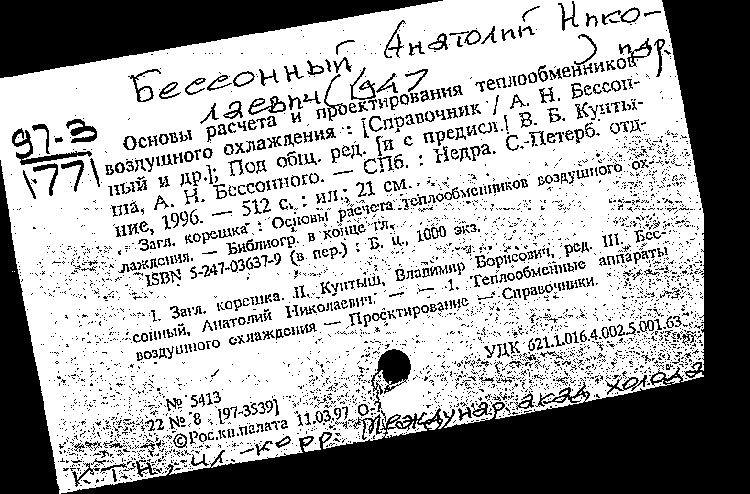 Бессонный Анатолий Нико-
лаевич (1947 ) пер.
97-3
177
Основы расчета и проектирования теплообменников
воздушного охлаждения : [Справочник / А. Н. Бессон-
ный и др.]; Под общ. ред. [и с предисл.] В. Б. Кунты-
ша, А. Н. Бессонного. — СПб. : Недра. С.-Петерб. отд-
ние, 1996. — 512 с. : ил.; 21 см.
Загл. корешка : Основы расчета теплообменников воздушного ох-
лаждения. — Библиогр. в конце гл.
ISBN 5-247-03637-9 (в пер.) : Б. ц., 1000 экз.
1. Загл. корешка. II. Кунтыш, Владимир Борисович, ред. III. Бес-
сонный, Анатолий Николаевич. — — 1. Теплообменные аппараты
воздушного охлаждения — Проектирование — Справочники.
УДК 621.1.016.4.002.5.001.63
№ 5413
22 № 8 [97-3539]
©Рос.кн.палата 11.03.97 О-
к.т.н., чл.-корр. Междунар. акад. холода